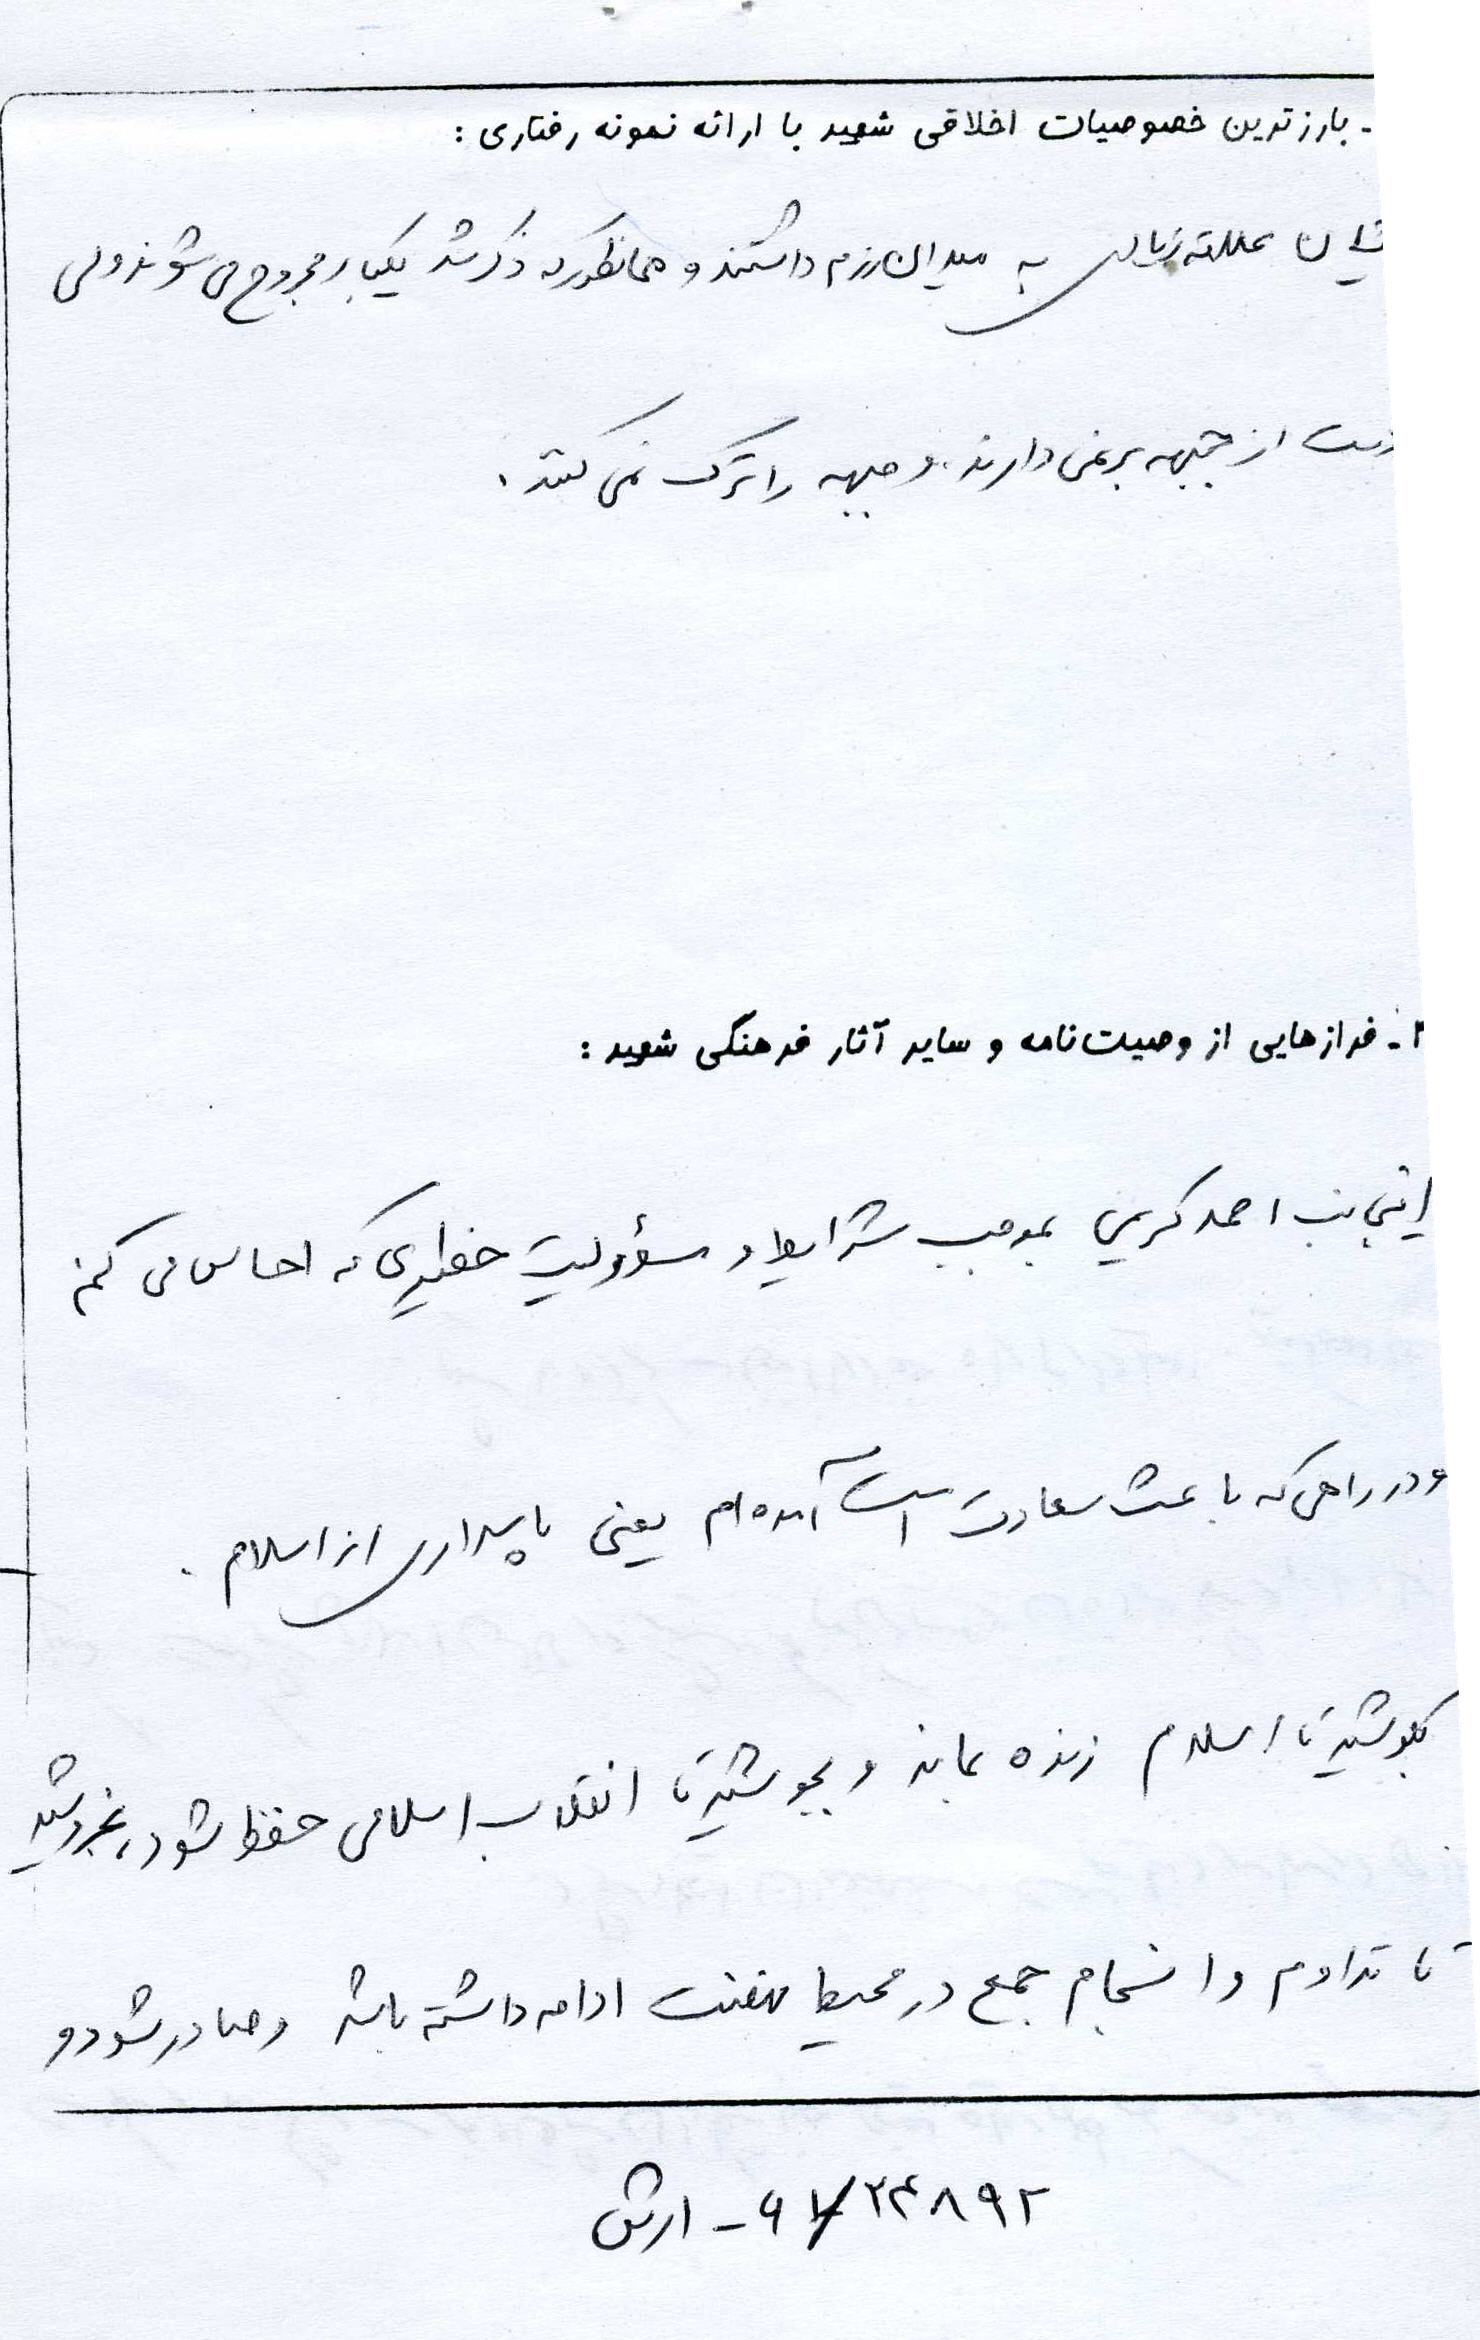 - بارزترین خصوصیات اخلاقی شهید با ارائه نمونه رفتاری :
ایشان علاقه زیادی به میدان رزم داشتند و همانطور که ذکر شد یکبار مجروح می شوند ولی
دست از جبهه برنمی دارند و جبهه را ترک نمی کنند .
- فرازهایی از وصیت‌نامه و سایر آثار فرهنگی شهید :
اینجانب احمد کریمی بموجب شرایط و مسؤولیت خطیری که احساس می کنم
و در راهی که باعث سعادت است آمده ام یعنی پاسداری از اسلام .
بکوشید تا اسلام زنده بماند و بجوشید تا انقلاب اسلامی حفظ شود، بخروشید
تا تداوم و انسجام جمع در محیط نهضت ادامه داشته باشد و صادر شود و
۶۷/۲۴۸۹۲ - ارتش